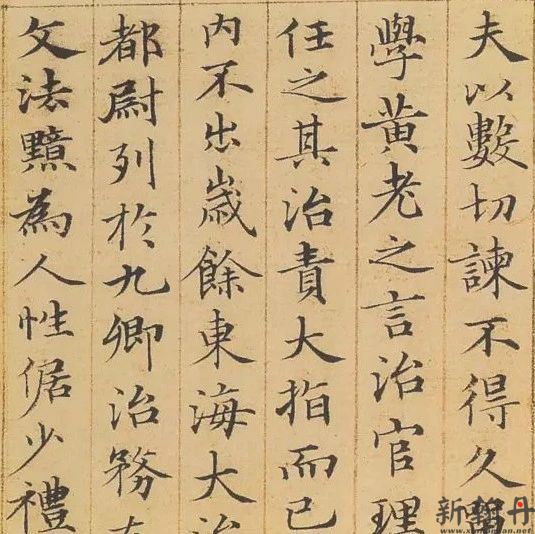 夫以數切諫不得久留
學黃老之言治官理
任之其治責大指而已
内不出歲餘東海大治
都尉列於九卿治務在
文法黯為人性倨少禮